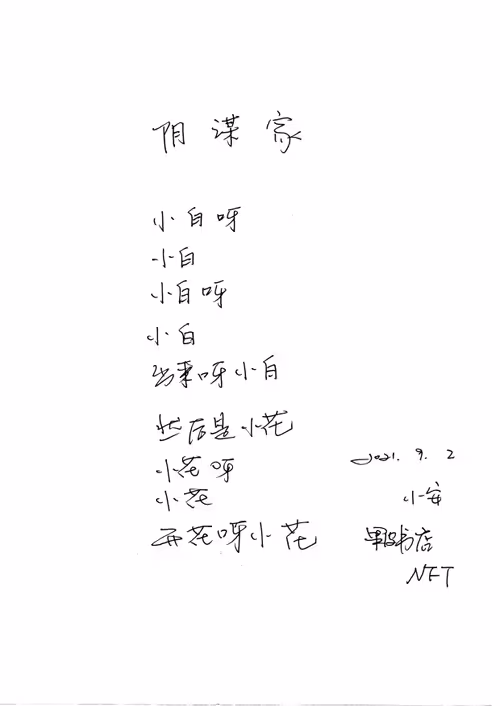 阴谋家
小白呀
小白
小白呀
小白
出来呀小白
然后是小花
小花呀
小花
开花呀小花
2021.9.2
小安
书店
NFT